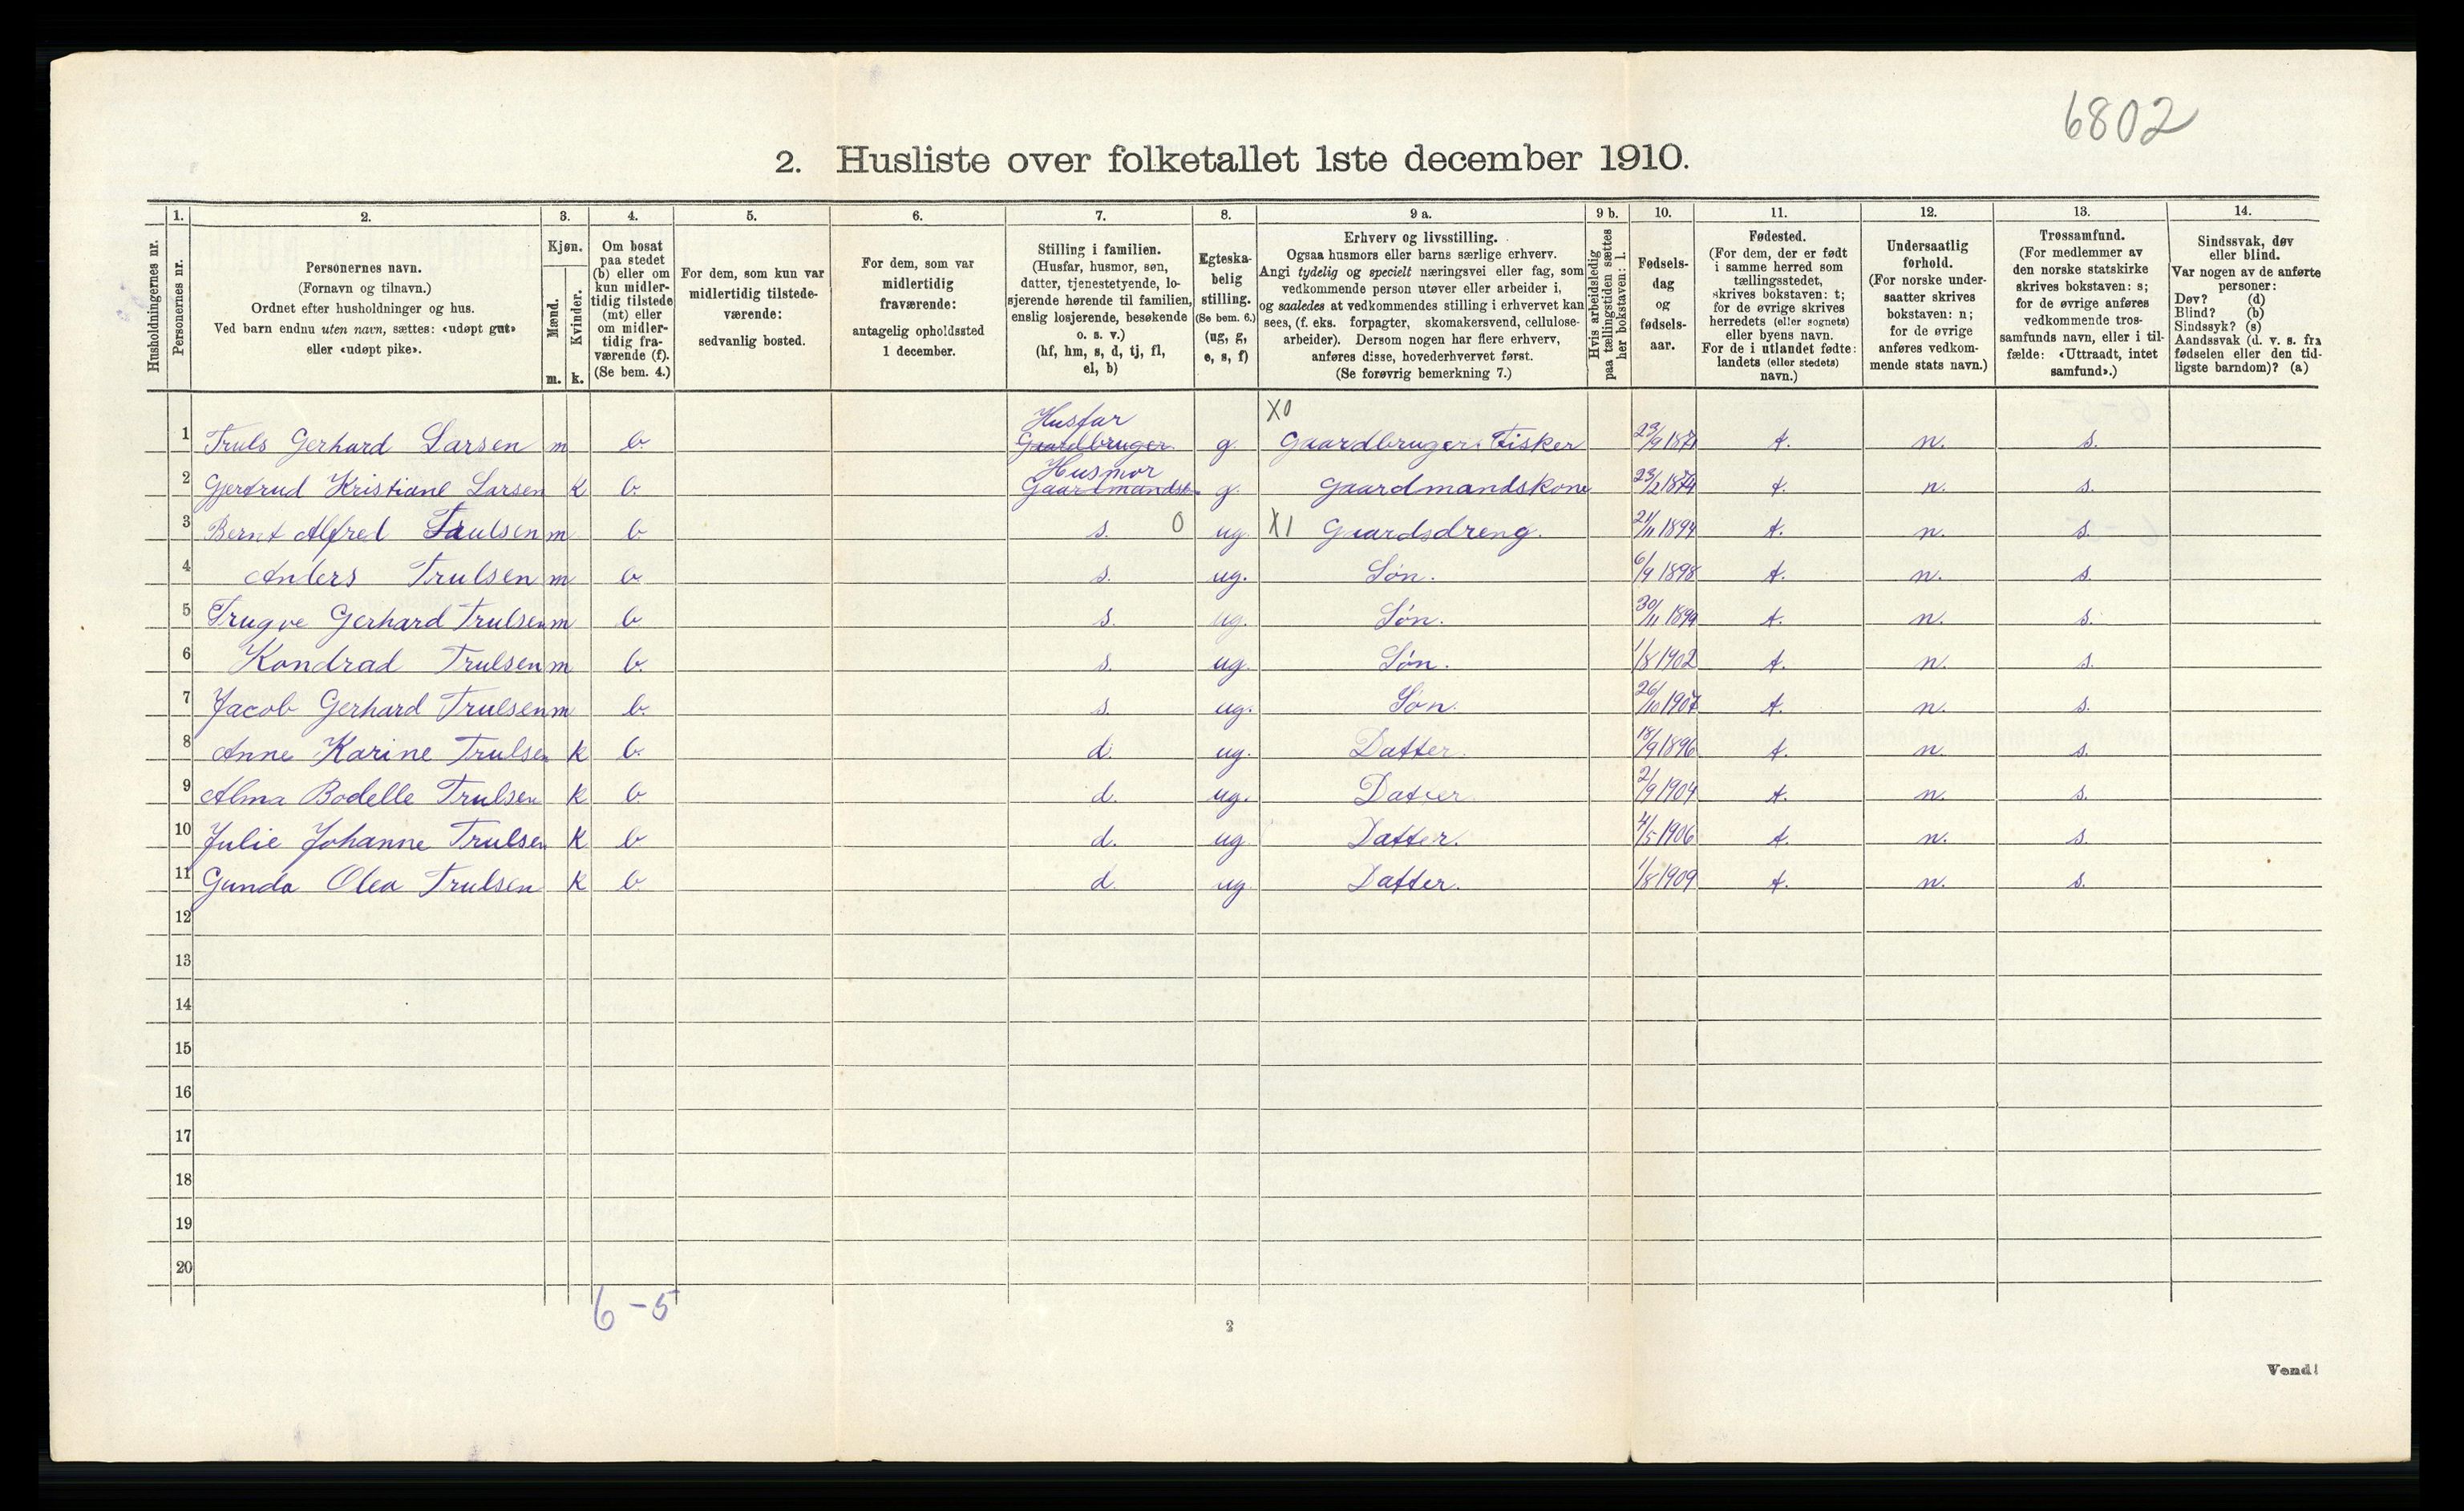 6802
2. Husliste over folketallet 1ste december 1910.
Husholdningernes nr.
1. Personernes nr.
2. Personernes navn. (Fornavn og tilnavn.) Ordnet efter husholdninger og hus. Ved barn endnu uten navn, sættes: «udøpt gut» eller «udøpt pike».
3. Kjøn. Mænd. m. Kvinder. k.
4. Om bosat paa stedet (b) eller om kun midlertidig tilstede (mt) eller om midlertidig fraværende (f). (Se bem. 4.)
5. For dem, som kun var midlertidig tilstedeværende: sedvanlig bosted.
6. For dem, som var midlertidig fraværende: antagelig opholdssted 1 december.
7. Stilling i familien. (Husfar, husmor, søn, datter, tjenestetyende, losjerende hørende til familien, enslig losjerende, besøkende o. s. v.) (hf, hm, s, d, tj, fl, el, b)
8. Egteskabelig stilling. (Se bem. 6.) (ug, g, e, s, f)
9 a. Erhverv og livsstilling. Ogsaa husmors eller barns særlige erhverv. Angi tydelig og specielt næringsvei eller fag, som vedkommende person utøver eller arbeider i, og saaledes at vedkommendes stilling i erhvervet kan sees, (f. eks. forpagter, skomakersvend, cellulosearbeider). Dersom nogen har flere erhverv, anføres disse, hovederhvervet først. (Se forøvrig bemerkning 7.)
9 b. Hvis arbeidsledig paa tællingstiden sættes her bokstaven: l.
10. Fødselsdag og fødselsaar.
11. Fødested. (For dem, der er født i samme herred som tællingsstedet, skrives bokstaven: t; for de øvrige skrives herredets (eller sognets) eller byens navn. For de i utlandet fødte: landets (eller stedets) navn.)
12. Undersaatlig forhold. (For norske undersaatter skrives bokstaven: n; for de øvrige anføres vedkommende stats navn.)
13. Trossamfund. (For medlemmer av den norske statskirke skrives bokstaven: s; for de øvrige anføres vedkommende trossamfunds navn, eller i tilfælde: «Uttraadt, intet samfund».)
14. Sindssvak, døv eller blind. Var nogen av de anførte personer: Døv? (d) Blind? (b) Sindssyk? (s) Aandssvak (d. v. s. fra fødselen eller den tidligste barndom)? (a)
1 Truls Gerhard Larsen m b. Husfar Gaardbruger g. X0 Gaardbruger. Fisker 23/9 1871 t. n. s.
2 Gjertrud Kristiane Larsen k b. Husmor Gaardmandsk. g. Gaardmandskone 23/2 1874 t. n. s.
3 Bernt Alfred Trulsen m b s. 0 ug. X1 Gaardsdreng. 21/11 1894 t. n. s.
4 Anders Trulsen m b. s. ug. Søn. 6/9 1898 t. n. s.
5 Trugve Gerhard Trulsen m b s. ug. Søn. 30/11 1899 t. n. s.
6 Kondrad Trulsen m b. s. ug. Søn. 1/8 1902 t. n. s.
7 Jacob Gerhard Trulsen m b. s. ug. Søn. 26/10 1907 t. n. s.
8 Anne Karine Trulsen k b. d. ug. Datter. 18/9 1896 t. n. s.
9 Alma Bodelle Trulsen k b. d. ug. Datter 2/9 1904 t. n. s.
10 Julie Johanne Trulsen k b d. ug Datter. 4/5 1906 t. n. s.
11 Gunda Olea Trulsen k b d. ug. Datter. 1/8 1909 t. n. s.
12
13
14
15
16
17
18
19
20
6-5
2
Vend!